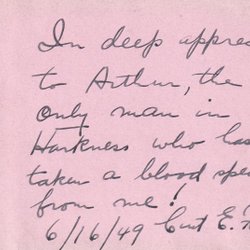 In deep apprec
to Arthur, the
only man in
Harkness who has
taken a blood spe
from me!
6/16/49 Curt E.